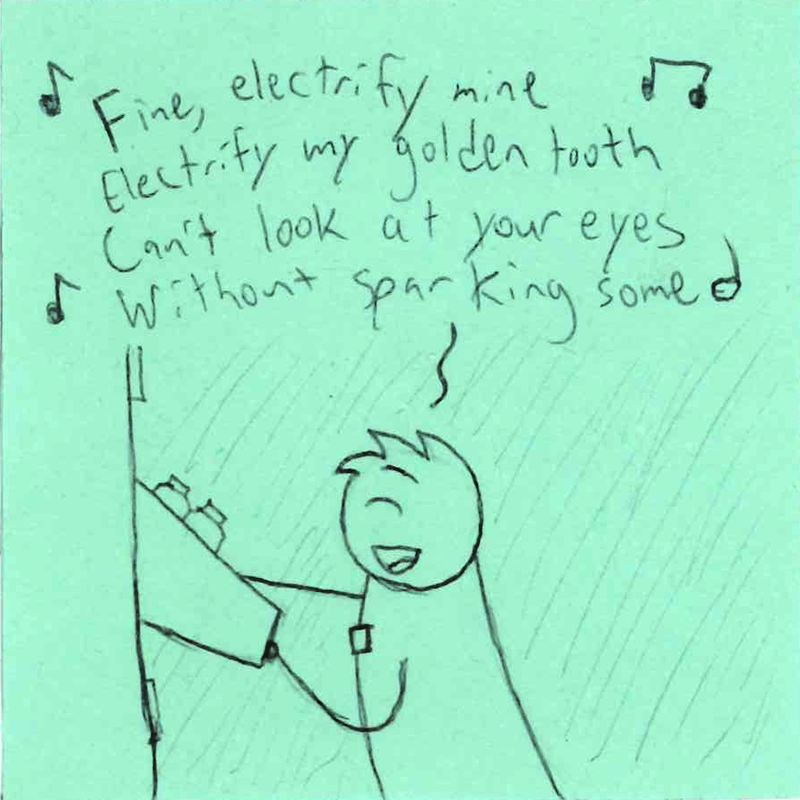 Fine, electrify mine
Electrify my golden tooth
Can't look at your eyes
Without sparking some